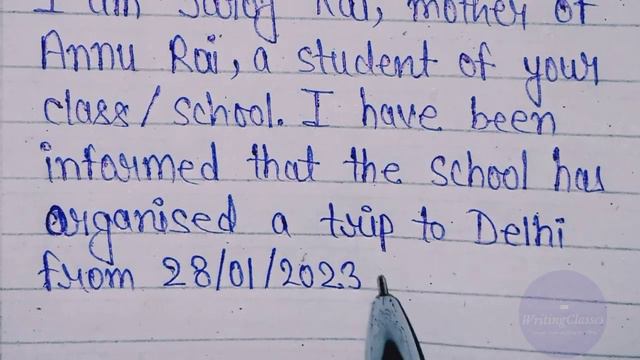 I am Saroj Rai, mother of
Annu Rai, a student of your
class/school. I have been
informed that the school has
organised a trip to Delhi
from 28/01/2023
WritingClasses